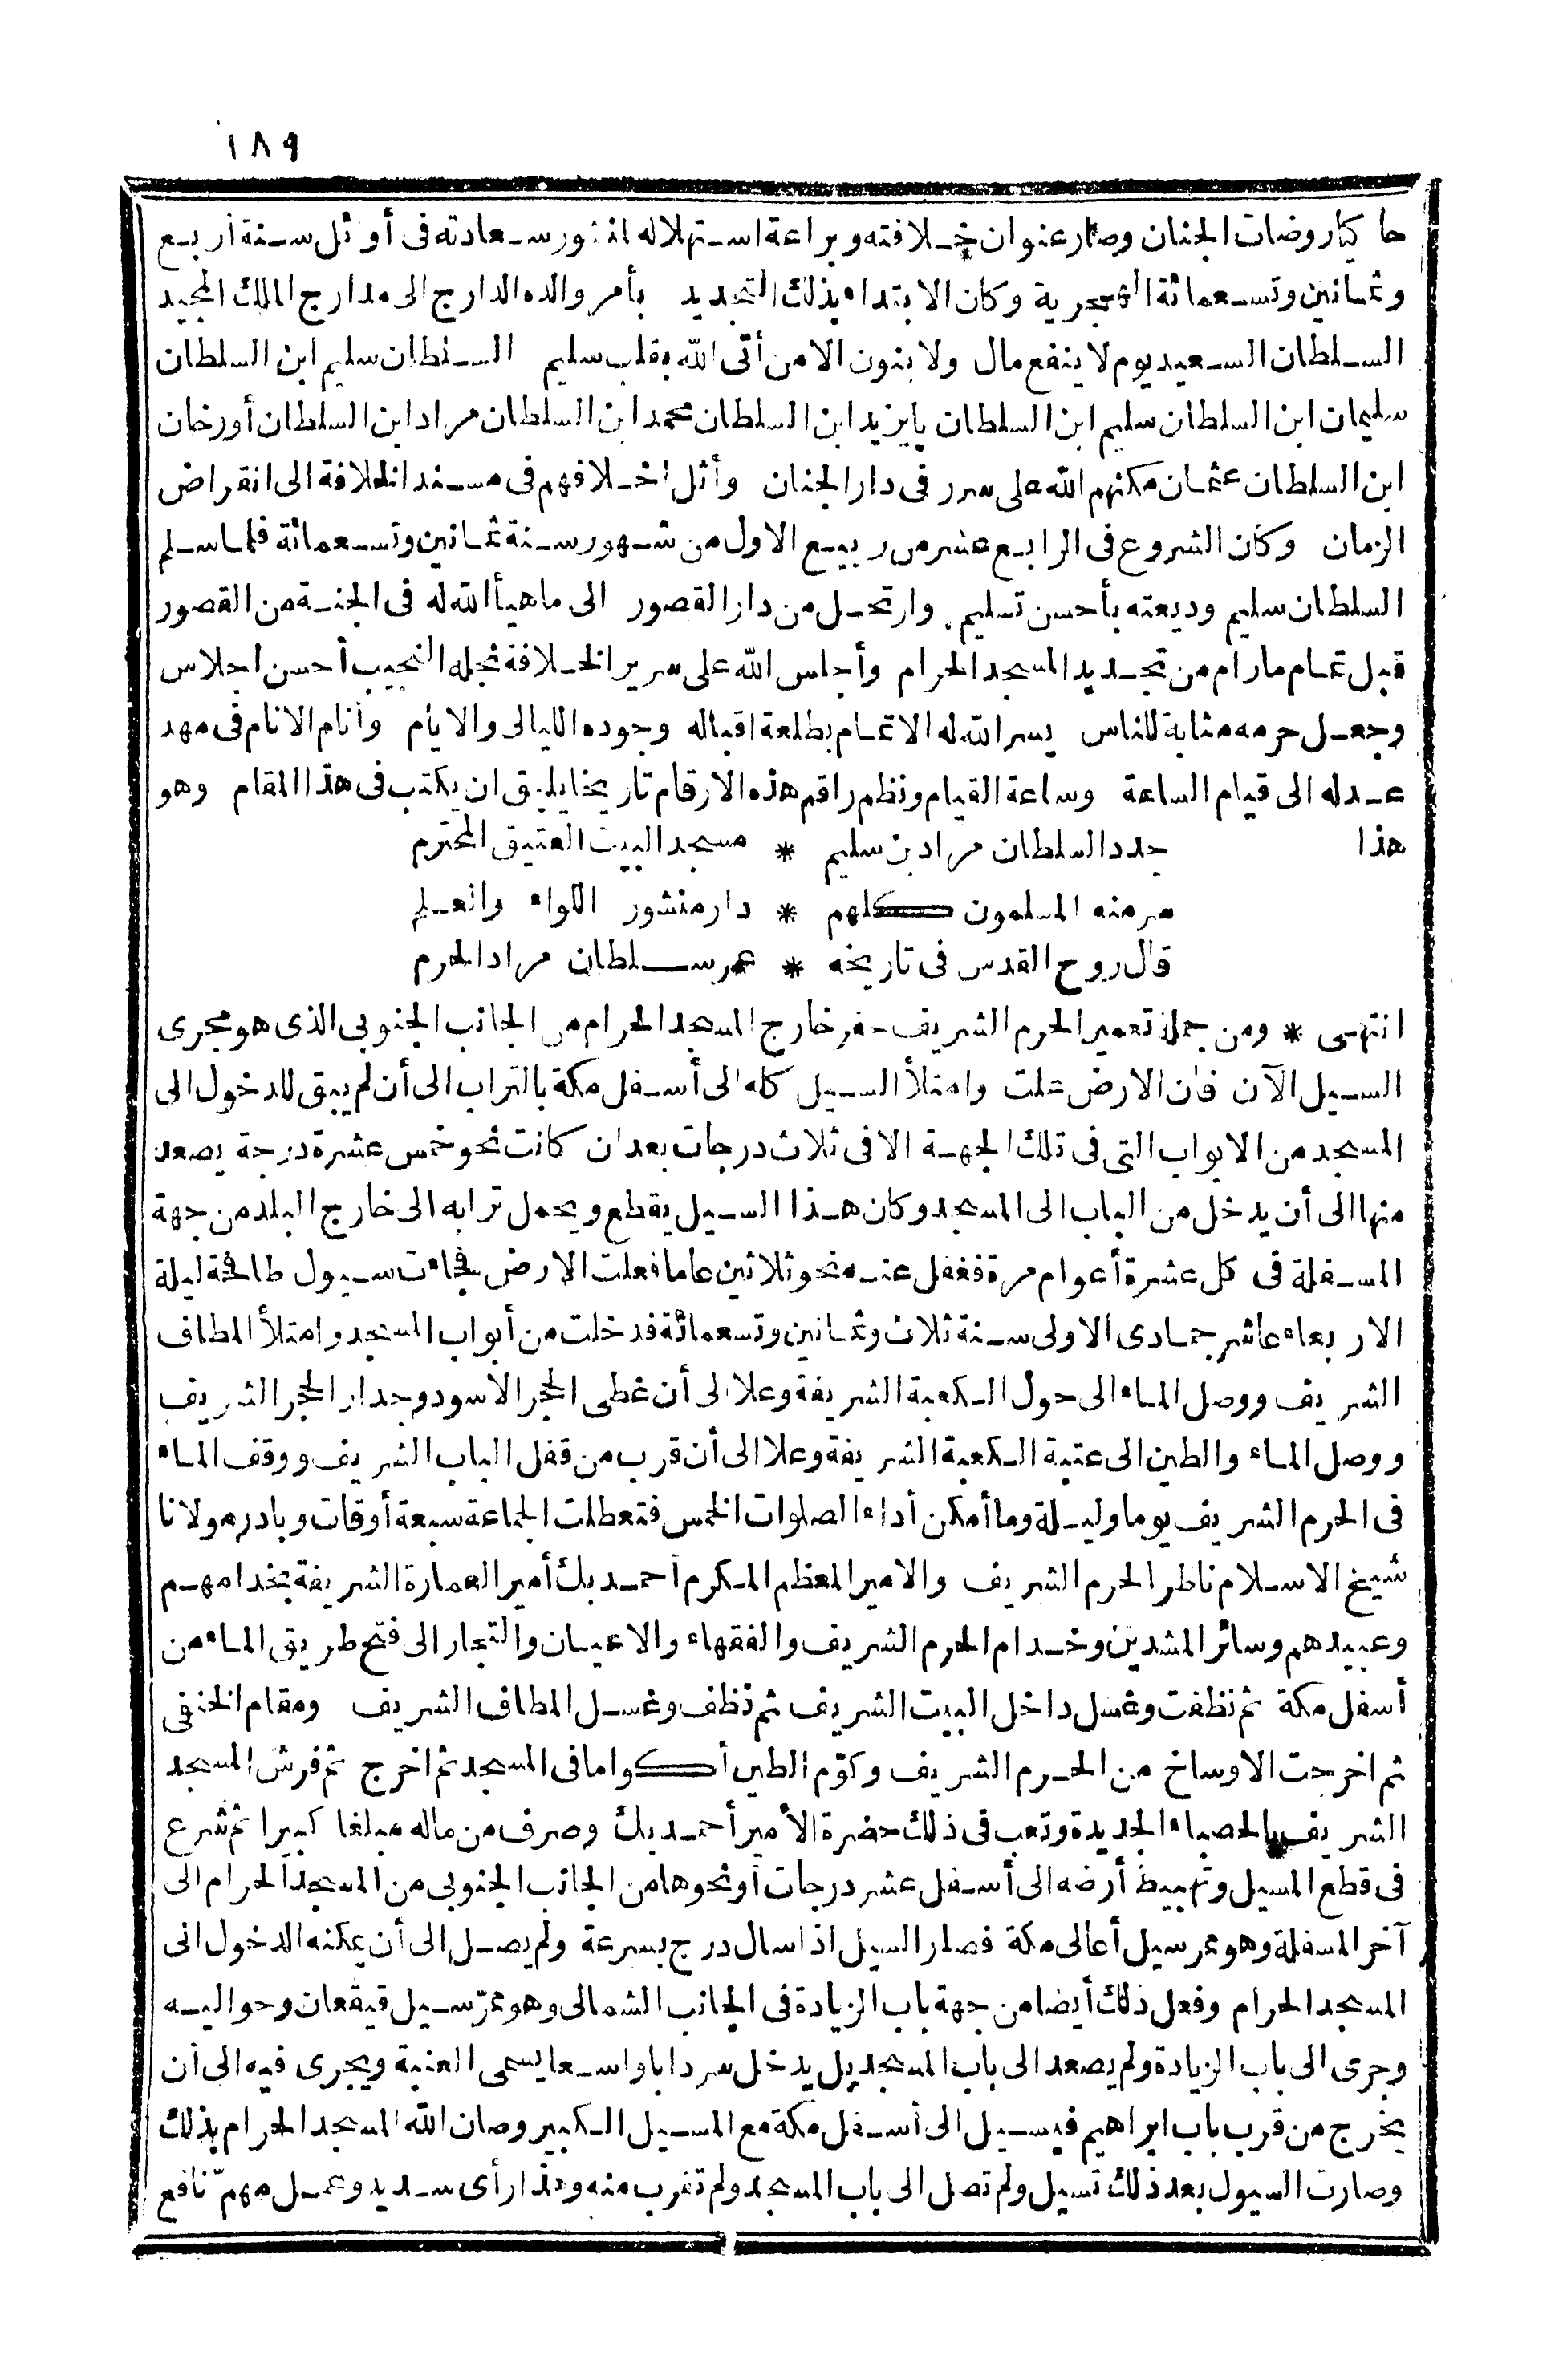 ١٨٩
حاكيا روضات الجنان وصار عنوان خلافته وبراعة استهلاله لمنثور سعادته فى أوائل سنة أربع
وثمانين وتسعمائة الهجرية وكان الابتداء بذلك التجديد بأمر والده الدارج الى مدارج الملك المجيد
السلطان السعيد يوم لا ينفع مال ولا بنون الا من أتى الله بقلب سليم السلطان سليم ابن السلطان
سليمان ابن السلطان سليم ابن السلطان بايزيد ابن السلطان محمد ابن السلطان مراد ابن السلطان أورخان
ابن السلطان عثمان مكنهم الله على سرر فى دار الجنان وأثل اخلافهم فى مسند الخلافة الى انقراض
الزمان وكان الشروع فى الرابع عشر من ربيع الاول من شهور سنة ثمانين وتسعمائة فلما سلم
السلطان سليم وديعته بأحسن تسليم وارتحل من دار القصور الى ما هيأ الله له فى الجنة من القصور
قبل تمام مارام من تجديد المسجد الحرام وأجلس الله على سرير الخلافة نجله النجيب أحسن اجلاس
وجعل حرمه مثابة للناس يسر الله له الاتمام بطلعة اقباله وجوده الليالى والايام وأنام الانام فى مهد
عدله الى قيام الساعة وساعة القيام ونظم راقم هذه الارقام تاريخا يليق ان يكتب فى هذا المقام وهو
هذا جدد السلطان مراد بن سليم * مسجد البيت العتيق المحترم
سر منه المسلمون كلهم * دار منشور اللواء والعلم
قال روح القدس فى تاريخه * عمر سلطان مراد الحرم
انتهى * ومن جملة تعمير الحرم الشريف حفر خارج المسجد الحرام من الجانب الجنوبى الذى هو مجرى
السيل الآن فان الارض علت وامتلأ السيل كله الى أسفل مكة بالتراب الى أن لم يبق للدخول الى
المسجد من الابواب التى فى تلك الجهة الا فى ثلاث درجات بعد ان كانت نحو خمس عشرة درجة يصعد
منها الى أن يدخل من الباب الى المسجد وكان هذا السيل يقطع ويحمل ترابه الى خارج البلد من جهة
المسفلة فى كل عشرة أعوام مرة فغفل عنه نحو ثلاثين عاما فعلت الارض فجاءت سيول طافحة ليلة
الاربعاء عاشر جمادى الاولى سنة ثلاث وثمانين وتسعمائة فدخلت من أبواب المسجد وامتلأ المطاف
الشريف ووصل الماء الى حول الكعبة الشريفة وعلا الى أن غطى الحجر الاسود وجدار الحجر الشريف
ووصل الماء والطين الى عتبة الكعبة الشريفة وعلا الى أن قرب من قفل الباب الشريف ووقف الماء
فى الحرم الشريف يوما وليلة وما أمكن أداء الصلوات الخمس فتعطلت الجماعة سبعة أوقات وبادر مولانا
شيخ الاسلام ناظر الحرم الشريف والامير المعظم المكرم أحمد بك أمير العمارة الشريفة بخدامهم
وعبيدهم وسائر المشدين وخدام الحرم الشريف والفقهاء والاعيان والتجار الى فتح طريق الماء من
أسفل مكة ثم نظفت وغسل داخل البيت الشريف ثم نظف وغسل المطاف الشريف ومقام الحنفى
ثم اخرجت الاوساخ من الحرم الشريف وكوّم الطين أكواما فى المسجد ثم اخرج ثم فرش المسجد
الشريف بالحصباء الجديدة وتعب فى ذلك حضرة الأمير أحمد بك وصرف من ماله مبلغا كبيرا ثم شرع
فى قطع المسيل وتهبيط أرضه الى أسفل عشر درجات أو نحوها من الجانب الجنوبى من المسجد الحرام الى
آخر المسفلة وهو ممر سيل أعالى مكة فصار السيل اذا سال درج بسرعة ولم يصل الى أن يمكنه الدخول الى
المسجد الحرام وفعل ذلك أيضا من جهة باب الزيادة فى الجانب الشمالى وهو ممرّ سيل قيقعان وحواليه
وجرى الى باب الزيادة ولم يصعد الى باب المسجد بل يدخل سردابا واسعا يسمى العنبة ويجرى فيه الى أن
يخرج من قرب باب ابراهيم فيسيل الى أسفل مكة مع المسيل الكبير وصان الله المسجد الحرام بذلك
وصارت السيول بعد ذلك تسيل ولم تصل الى باب المسجد ولم تقرب منه وهذا رأى سديد وعمل مهمّ نافع